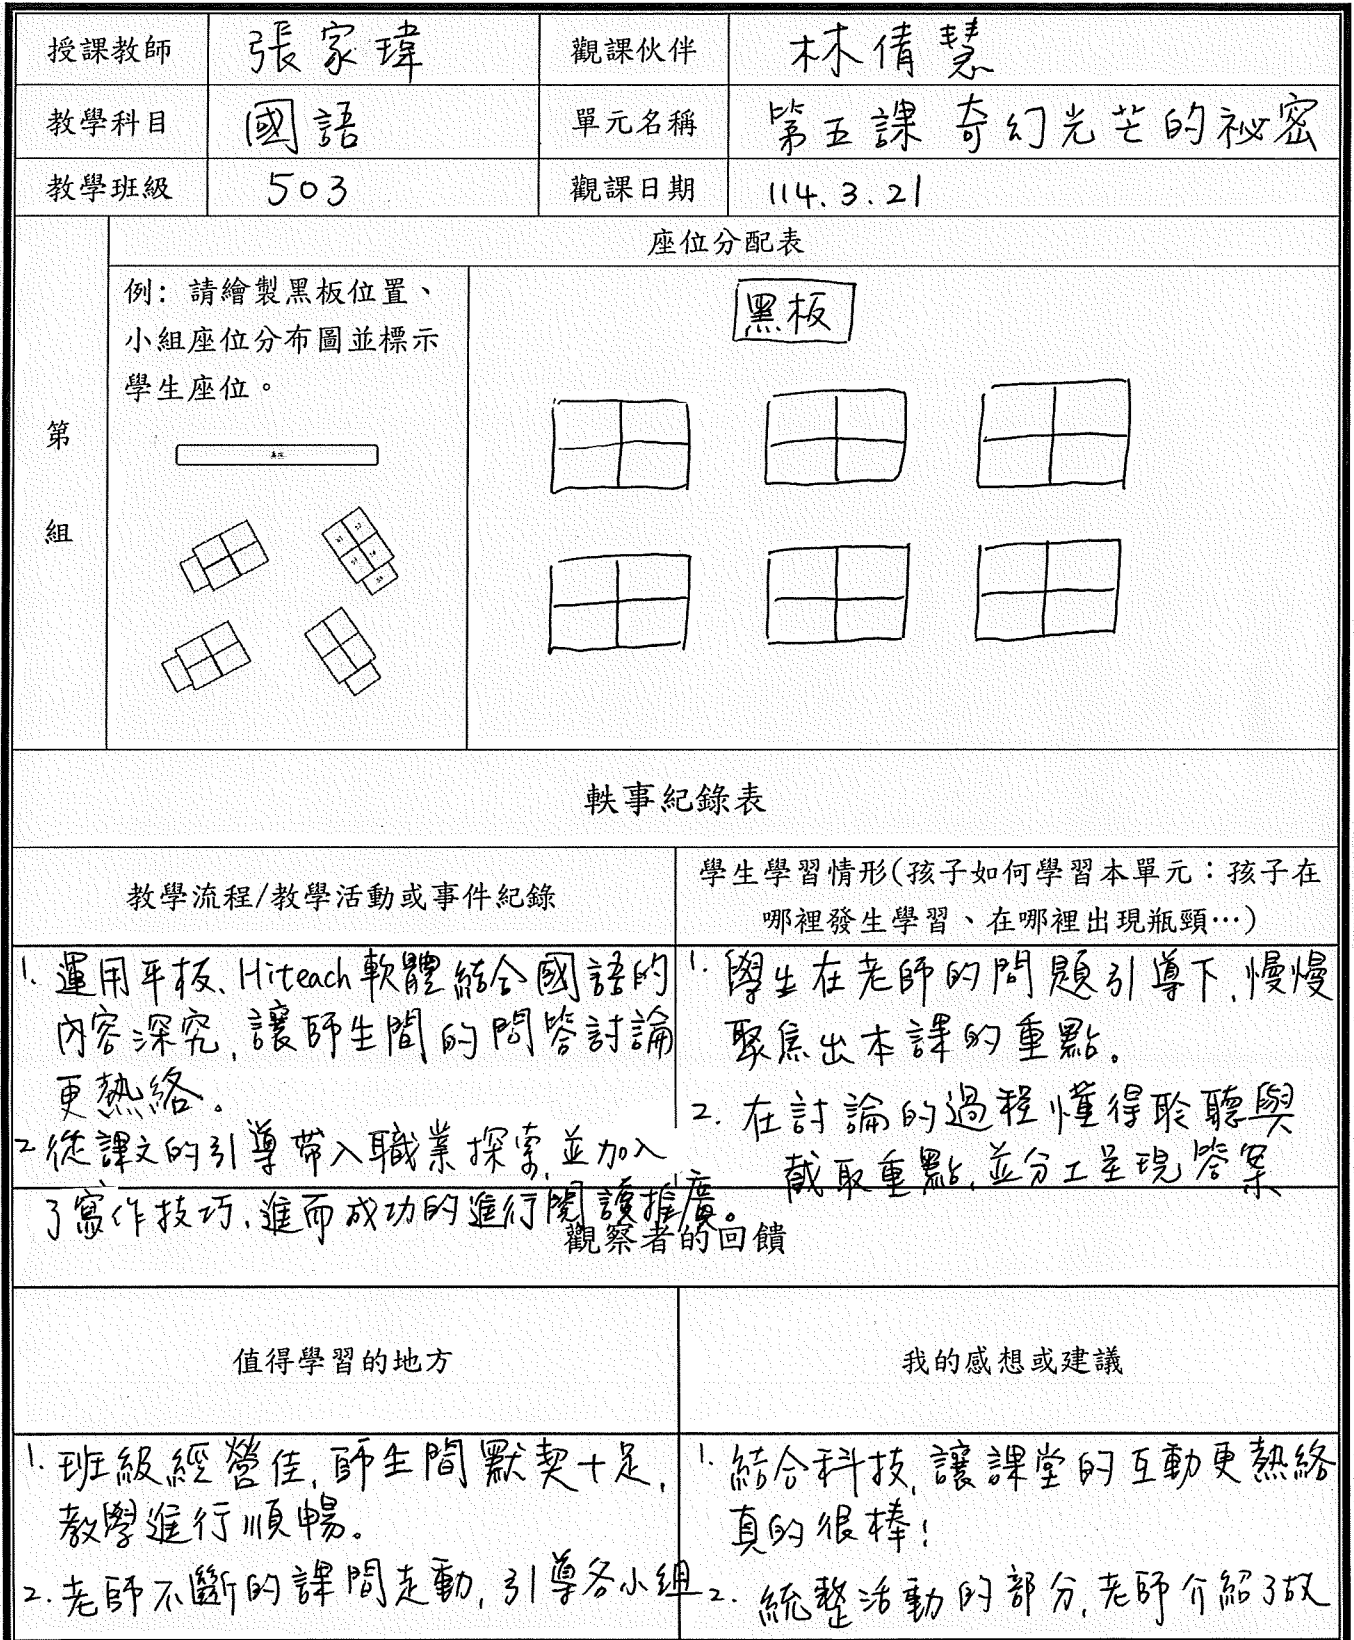 授課教師 張家瑋 觀課伙伴 林倩慧
教學科目 國語 單元名稱 第五課 奇幻光芒的祕密
教學班級 503 觀課日期 114.3.21
座位分配表
第
組
例：請繪製黑板位置、
小組座位分布圖並標示
學生座位。
黑板
軼事紀錄表
教學流程/教學活動或事件紀錄
學生學習情形(孩子如何學習本單元：孩子在
哪裡發生學習、在哪裡出現瓶頸…)
1. 運用平板、Hiteach 軟體結合國語的
內容深究，讓師生間的問答討論
更熱絡。
2. 從課文的引導帶入職業探索，並加入
了寫作技巧，進而成功的進行閱讀推廣。
1. 學生在老師的問題引導下，慢慢
聚焦出本課的重點。
2. 在討論的過程懂得聆聽與
截取重點，並分工呈現答案
觀察者的回饋
值得學習的地方
我的感想或建議
1. 班級經營佳，師生間默契十足，
教學進行順暢。
2. 老師不斷的課間走動，引導各小組
1. 結合科技，讓課堂的互動更熱絡
真的很棒！
2. 統整活動的部分，老師介紹了故